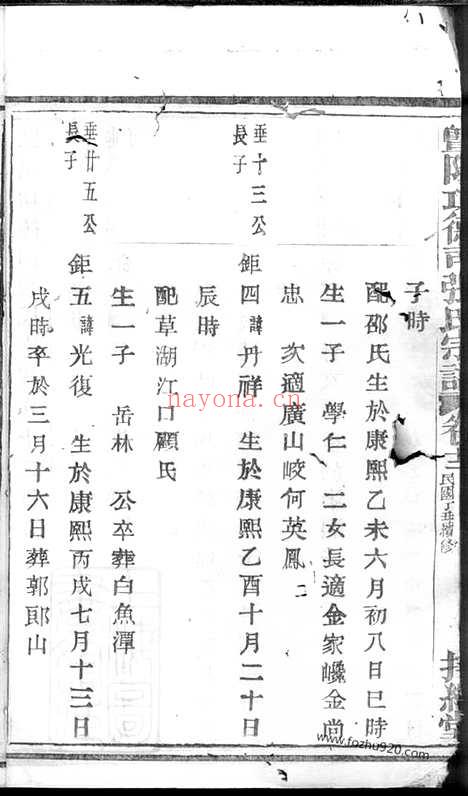 張氏宗譜 卷十三 民國丁丑續修
子時
配邵氏生於康熙乙未六月初八日巳時
生一子 學仁 二女長適金家嶴金尚
忠 次適廣山峧何英鳳 二
垂十三公長子 鉅四 諱丹祥 生於康熙乙酉十月二十日
辰時
配草湖江口顧氏
生一子 岳林 公卒葬白魚潭
垂廿五公長子 鉅五 諱光復 生於康熙丙戌七月十三日
戌時卒於三月十六日葬郭郎山
nayona.cn
www.fozhu920.com